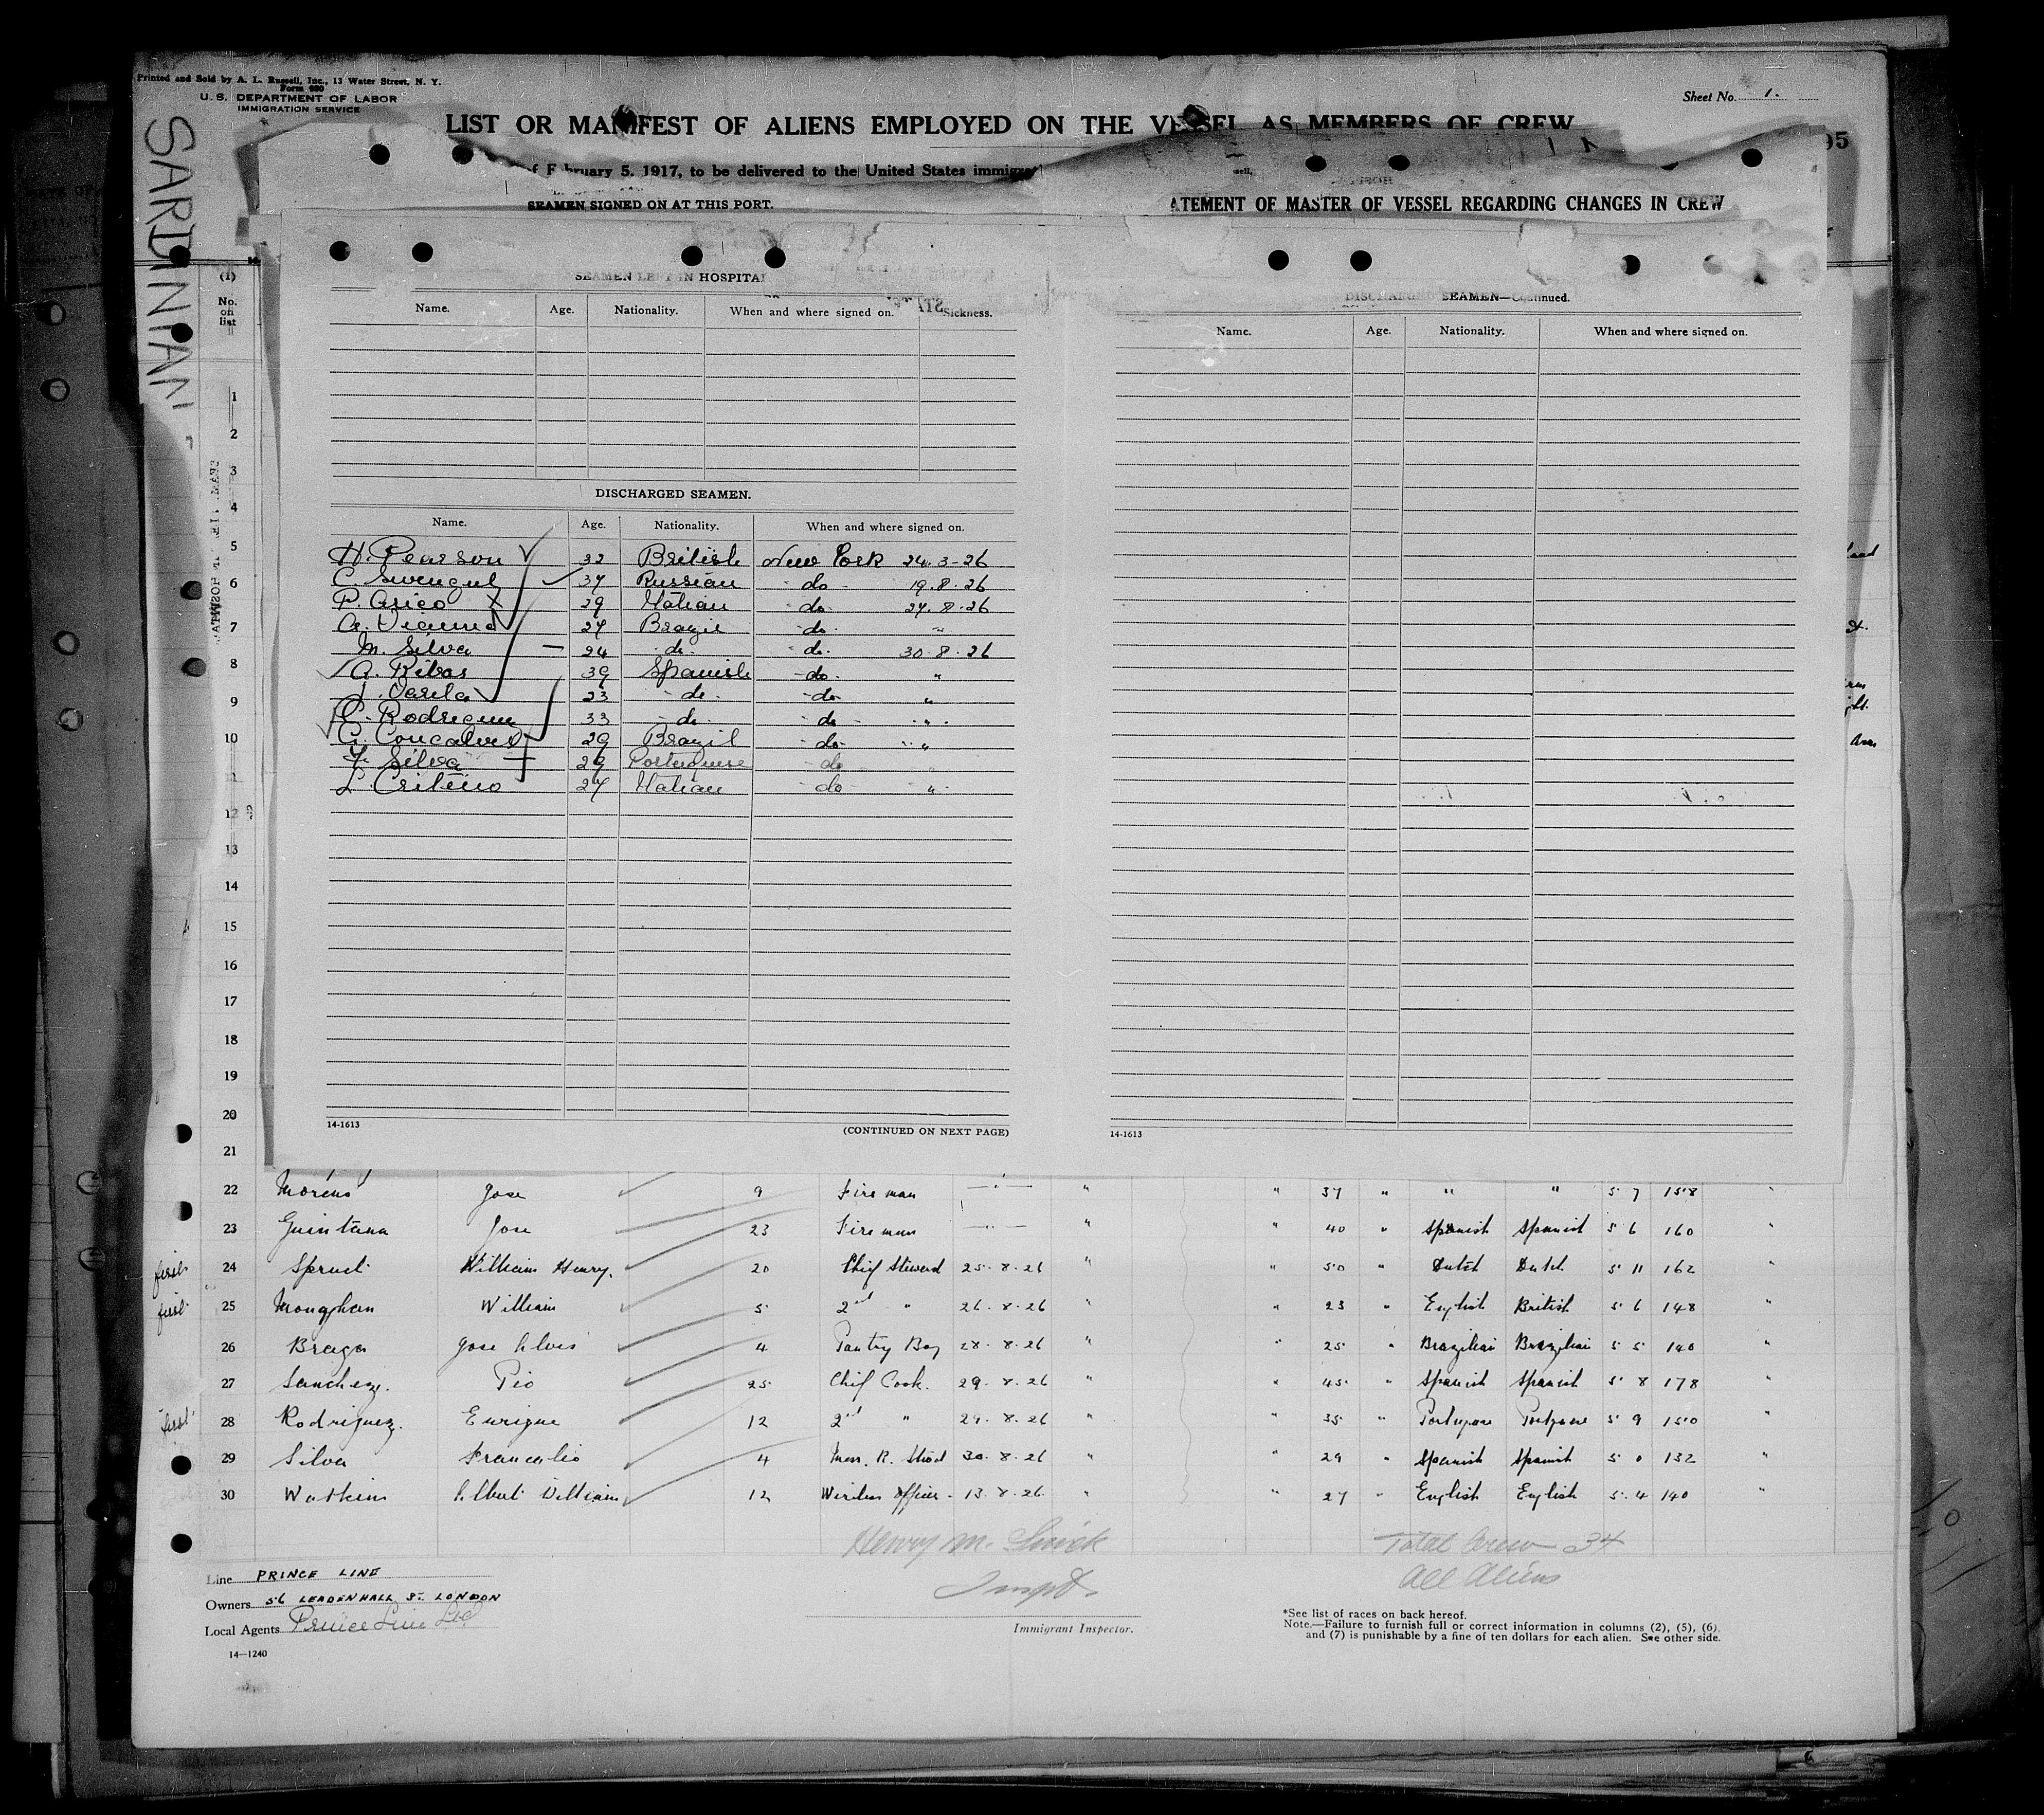 Printed and Sold by A. L. Russell, Inc., 13 Water Street, N. Y.
Form 680
U. S. DEPARTMENT OF LABOR
IMMIGRATION SERVICE
Sheet No. 1.
LIST OR MANIFEST OF ALIENS EMPLOYED ON THE VESSEL AS MEMBERS OF CREW
95
of February 5, 1917, to be delivered to the United States immigra
SEAMEN SIGNED ON AT THIS PORT.
ATEMENT OF MASTER OF VESSEL REGARDING CHANGES IN CREW
SARDINIAN
(1)
No. on list
SEAMEN LEFT IN HOSPITAL
Name. Age. Nationality. When and where signed on. Sickness.
DISCHARGED SEAMEN.
Name. Age. Nationality. When and where signed on.
H. Pearson 32 British New York 24.3-26
C. 37 Russian do 19.8.26
P. Arico X 29 Italian do 27.8.26
A. Vianna 27 Brazil do "
M. Silva 24 do do 30.8.26
A. Ribas 39 Spanish do "
J. Varela 23 do do "
Rodriguez 33 do do "
G. Goncalves 29 Brazil do "
F. Silva 29 Portuguese do "
L. 27 Italian do "
14-1613
(CONTINUED ON NEXT PAGE)
DISCHARGED SEAMEN—Continued.
Name. Age. Nationality. When and where signed on.
14-1613
1
2
3
4
5
6
7
8
9
10
11
12
13
14
15
16
17
18
19
20
21
22 Moreno Jose 9 Fireman " " 37 " " " 5 7 158 "
23 Quintana Jose 23 Fireman " " 40 " Spanish Spanish 5 6 160 "
first 24 William Henry. 20 Chief Steward 25.8.26 " " 50 " Dutch Dutch 5 11 162 "
first 25 Monaghan William 5 2nd " 26.8.26 " " 23 " English British 5 6 148 "
26 Braga Jose Alves 4 Pantry Boy 28.8.26 " " 25 " Brazilian Brazilian 5 5 140 "
27 Sanchez. Pio 25 Chief Cook. 29.8.26 " " 45 " Spanish Spanish 5 8 178 "
first 28 Rodriguez. Enrique 12 2nd " 27.8.26 " " 35 " Portuguese Portuguese 5 9 150 "
29 Silva 4 Mess. R. Stwd 30.8.26 " " 29 " Spanish Spanish 5 0 132 "
30 Watkins Albert William 12 Wireless Officer 13.8.26 " " 27 " English English 5 4 140 "
Henry M.
Inspt.
Total Crew 34
All Aliens
Line PRINCE LINE
Owners 56 LEADENHALL ST. LONDON
Local Agents Prince Line Ltd
Immigrant Inspector.
*See list of races on back hereof.
Note.—Failure to furnish full or correct information in columns (2), (5), (6),
and (7) is punishable by a fine of ten dollars for each alien. See other side.
14—1240